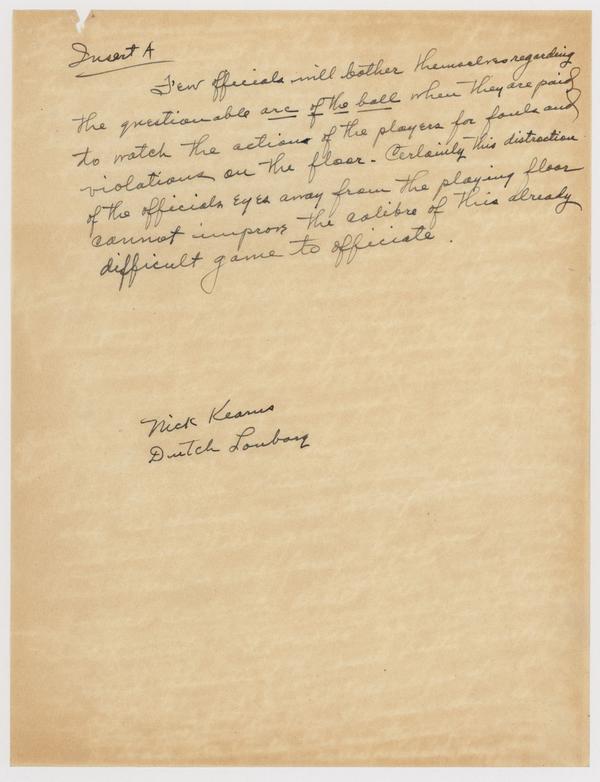 Insert A
Few officials will bother themselves regarding
the questionable arc of the ball when they are paid
to watch the actions of the players for fouls and
violations on the floor. Certainly this distraction
of the officials eyes away from the playing floor
cannot improve the calibre of this already
difficult game to officiate.
Nick Kearns
Dutch Lonborg